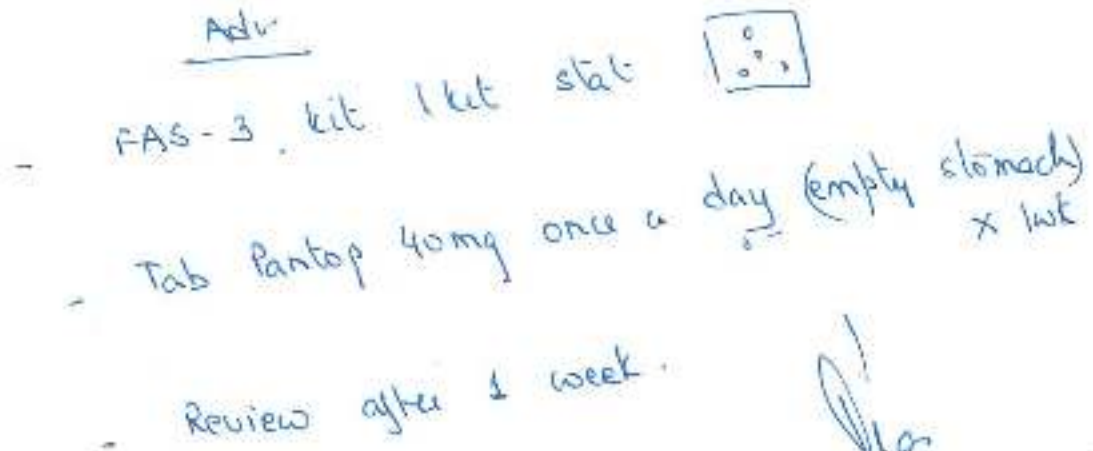 Adv
- FAS-3. kit 1 kit stat
- Tab Pantop 40mg once a day (empty stomach)
x 1wk
- Review after 1 week.